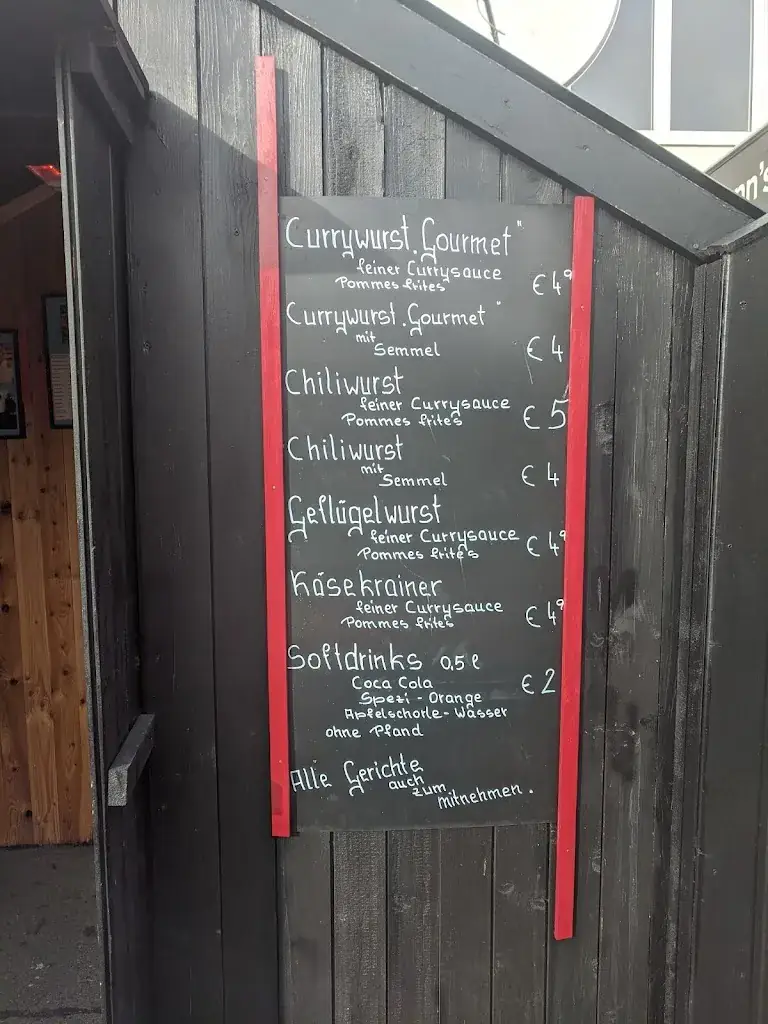 Currywurst "Gourmet"
feiner Currysauce
Pommes frites € 4⁹
Currywurst "Gourmet"
mit
Semmel € 4
Chiliwurst
feiner Currysauce
Pommes frite's € 5
Chiliwurst
mit
Semmel € 4
Geflügelwurst
feiner Currysauce
Pommes frite's € 4⁹
Käsekrainer
feiner Currysauce
Pommes frites € 4⁹
Softdrinks 0,5 l
Coca Cola € 2
Spezi - Orange
Apfelschorle - Wasser
ohne Pfand
Alle Gerichte
auch
zum
mitnehmen.